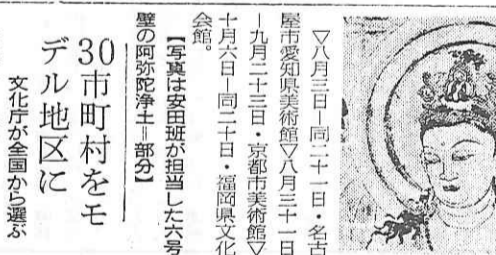 ▽八月三日―同二十一日・名古
屋市愛知県美術館▽八月三十一日
―九月二十三日・京都市美術館▽
十月六日―同二十日・福岡県文化
会館。
【写真は安田班が担当した六号
壁の阿弥陀浄土＝部分】
30市町村をモ
デル地区に
文化庁が全国から選ぶ